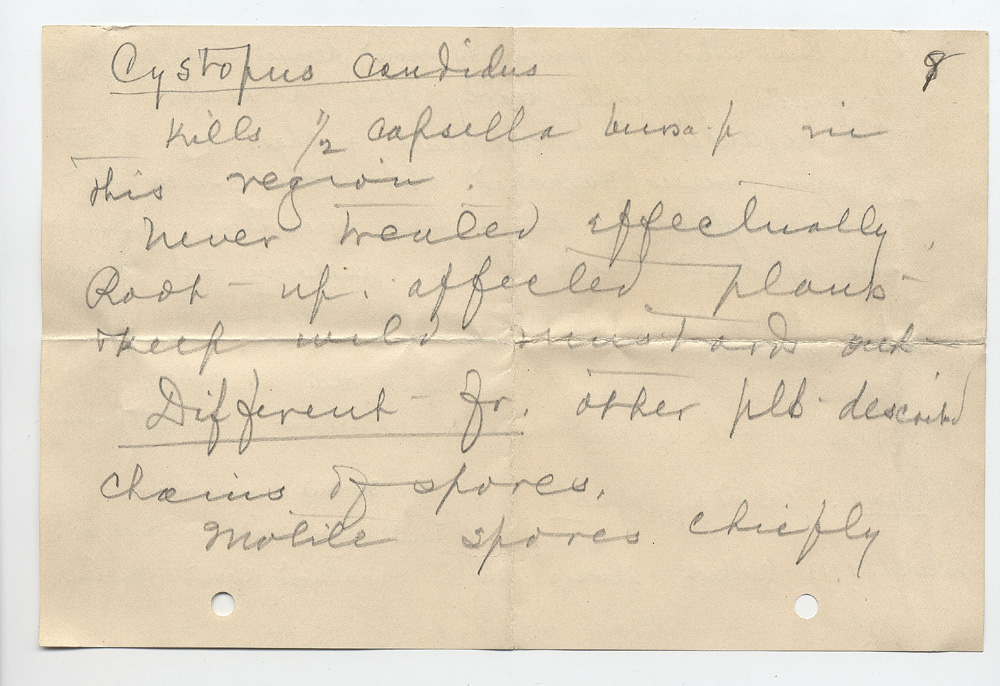 8
Cystopus candidus
Kills 1/2 capsella bursa-p in
this region.
Never treated effectually.
Root up affected plants
keep wild mustards out
Different fr. other plts described
chains of spores.
Motile spores chiefly